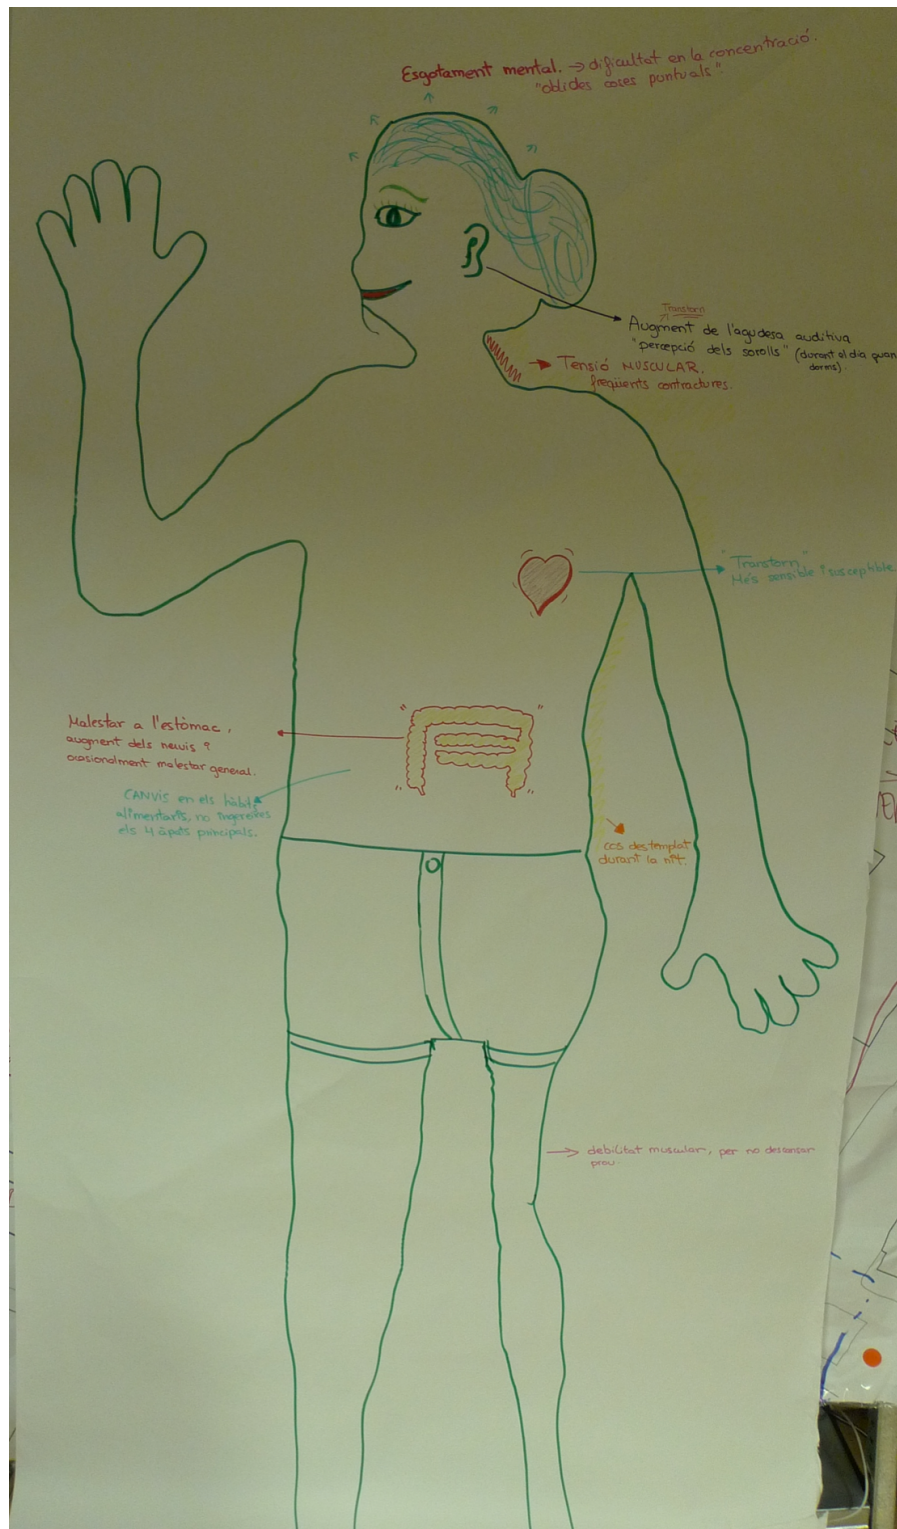 Esgotament mental. → dificultat en la concentració.
"oblides coses puntuals".
Transtorn
Augment de l'agudesa auditiva
"percepció dels sorolls" (durant el dia quan
dorms).
→ Tensió MUSCULAR,
freqüents contractures.
"Transtorn"
Més sensible i susceptible
Malestar a l'estòmac,
augment dels nervis ?
ocasionalment malestar general.
CANVIS en els hàbits
alimentaris, no ingereixes
els 4 àpats principals.
cos destemplat
durant la nit.
→ debilitat muscular, per no descansar
prou.